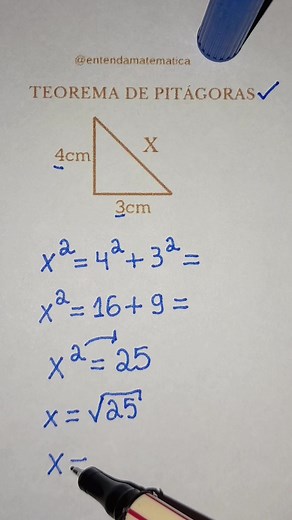 @entendamatematica
TEOREMA DE PITÁGORAS ✓
4cm
X
3cm
x² = 4² + 3² =
x² = 16 + 9 =
x² = 25
x = √25
x =